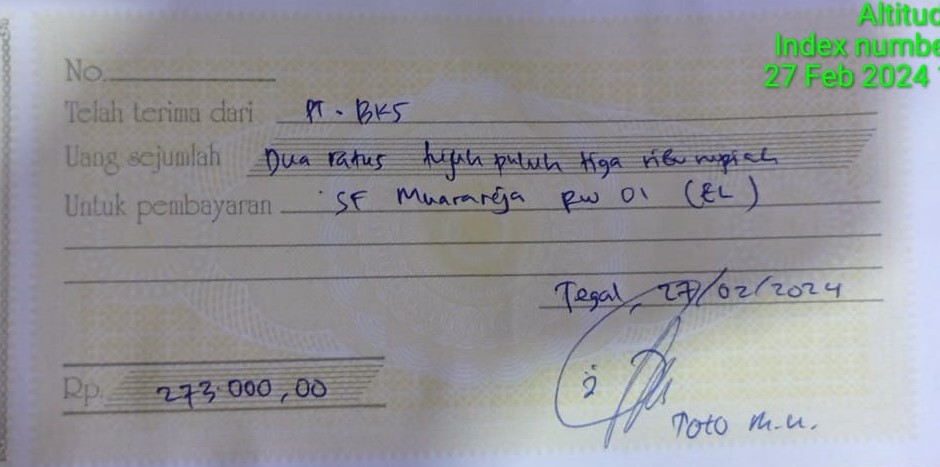 Altitud
Index numbe
27 Feb 2024
No.
Telah terima dari PT. BKS
Uang sejumlah Dua ratus tujuh puluh tiga ribu rupiah
Untuk pembayaran SF Muarareja RW 01 (EL)
Tegal, 27/02/2024
Rp. 273.000,00
Toto M.U.